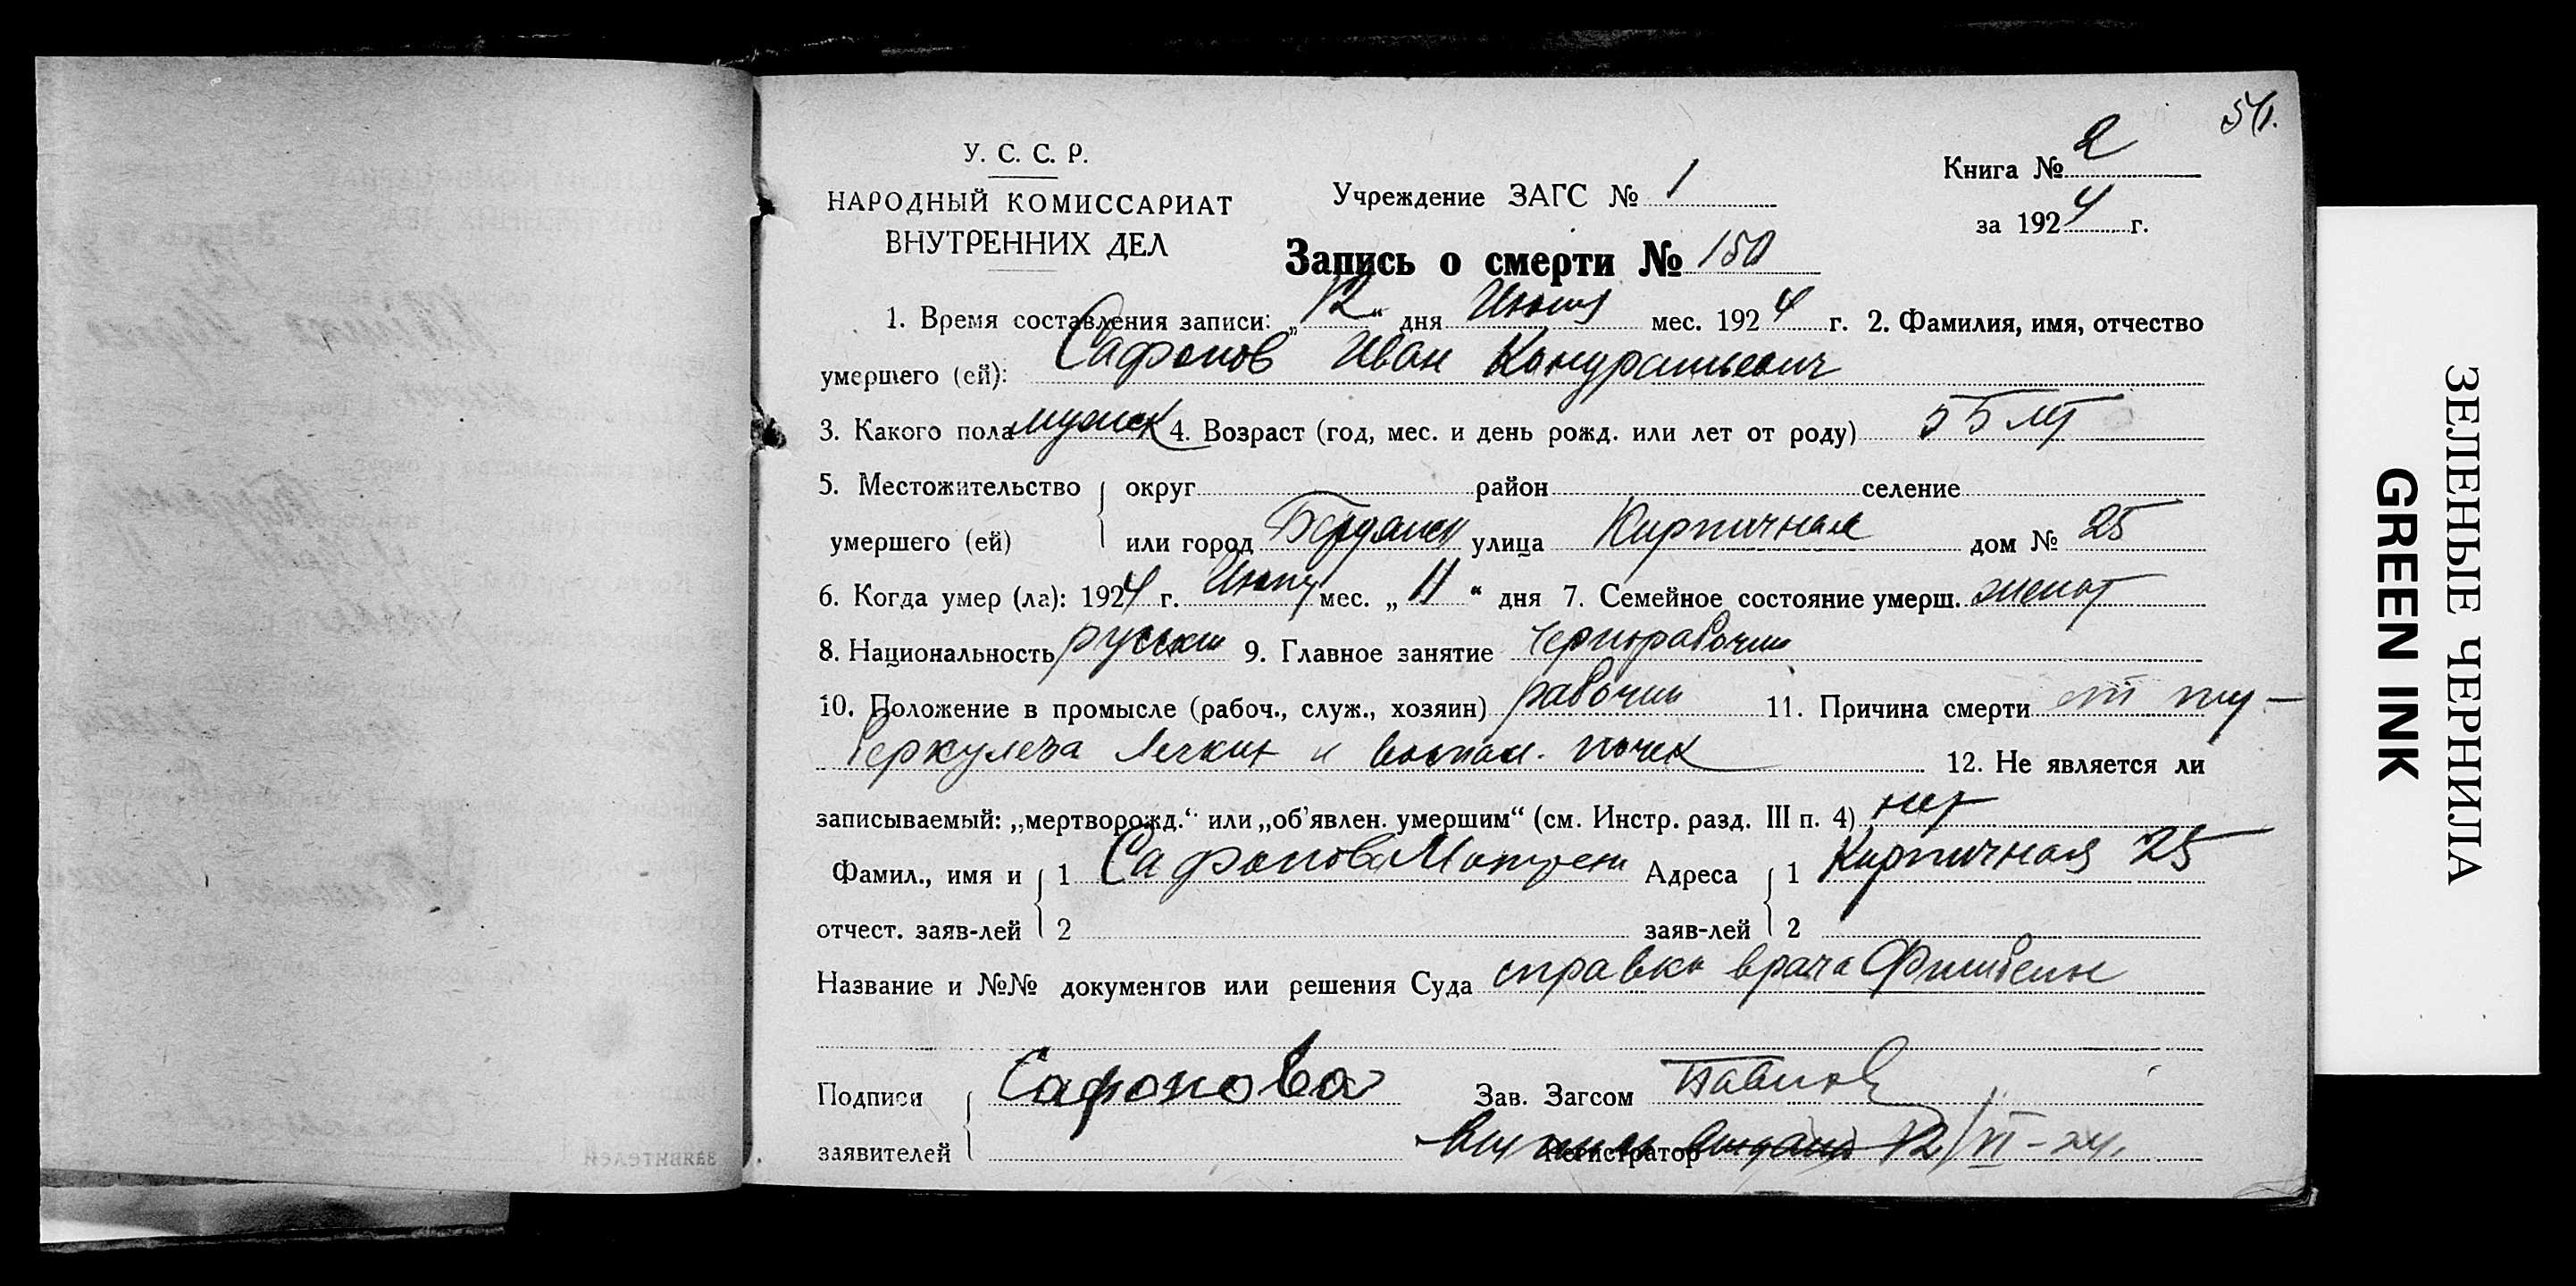 54.
У. С. С. Р.
НАРОДНЫЙ КОМИССАРИАТ
ВНУТРЕННИХ ДЕЛ
Учреждение ЗАГС № 1
Книга № 2
за 1924 г.
Запись о смерти № 150
1. Время составления записи: „12“ дня Июня мес. 1924 г. 2. Фамилия, имя, отчество
умершего (ей): Сафонов Иван Кондратьевич
3. Какого пола мужск 4. Возраст (год, мес. и день рожд. или лет от роду) 55 лет
5. Местожительство округ район селение
умершего (ей) или город Бердянск улица Кирпичная дом № 25
6. Когда умер (ла): 1924 г. Июня мес. „11“ дня 7. Семейное состояние умерш. женат
8. Национальность русский 9. Главное занятие Чернорабочий
10. Положение в промысле (рабоч., служ., хозяин) рабочий 11. Причина смерти от ту-
беркулеза легких и воспал. почек 12. Не является ли
записываемый: „мертворожд.“ или „об'явлен. умершим“ (см. Инстр. разд. III п. 4) нет
Фамил., имя и 1 Сафонова Адреса 1 Кирпичная 25
отчест. заяв-лей 2 заяв-лей 2
Название и №№ документов или решения Суда справка врача
Подписи Сафонова Зав. Загсом Павлов
заявителей Регистратор 12/VI-24.
заявителей
ЗЕЛЕНЫЕ ЧЕРНИЛА
GREEN INK